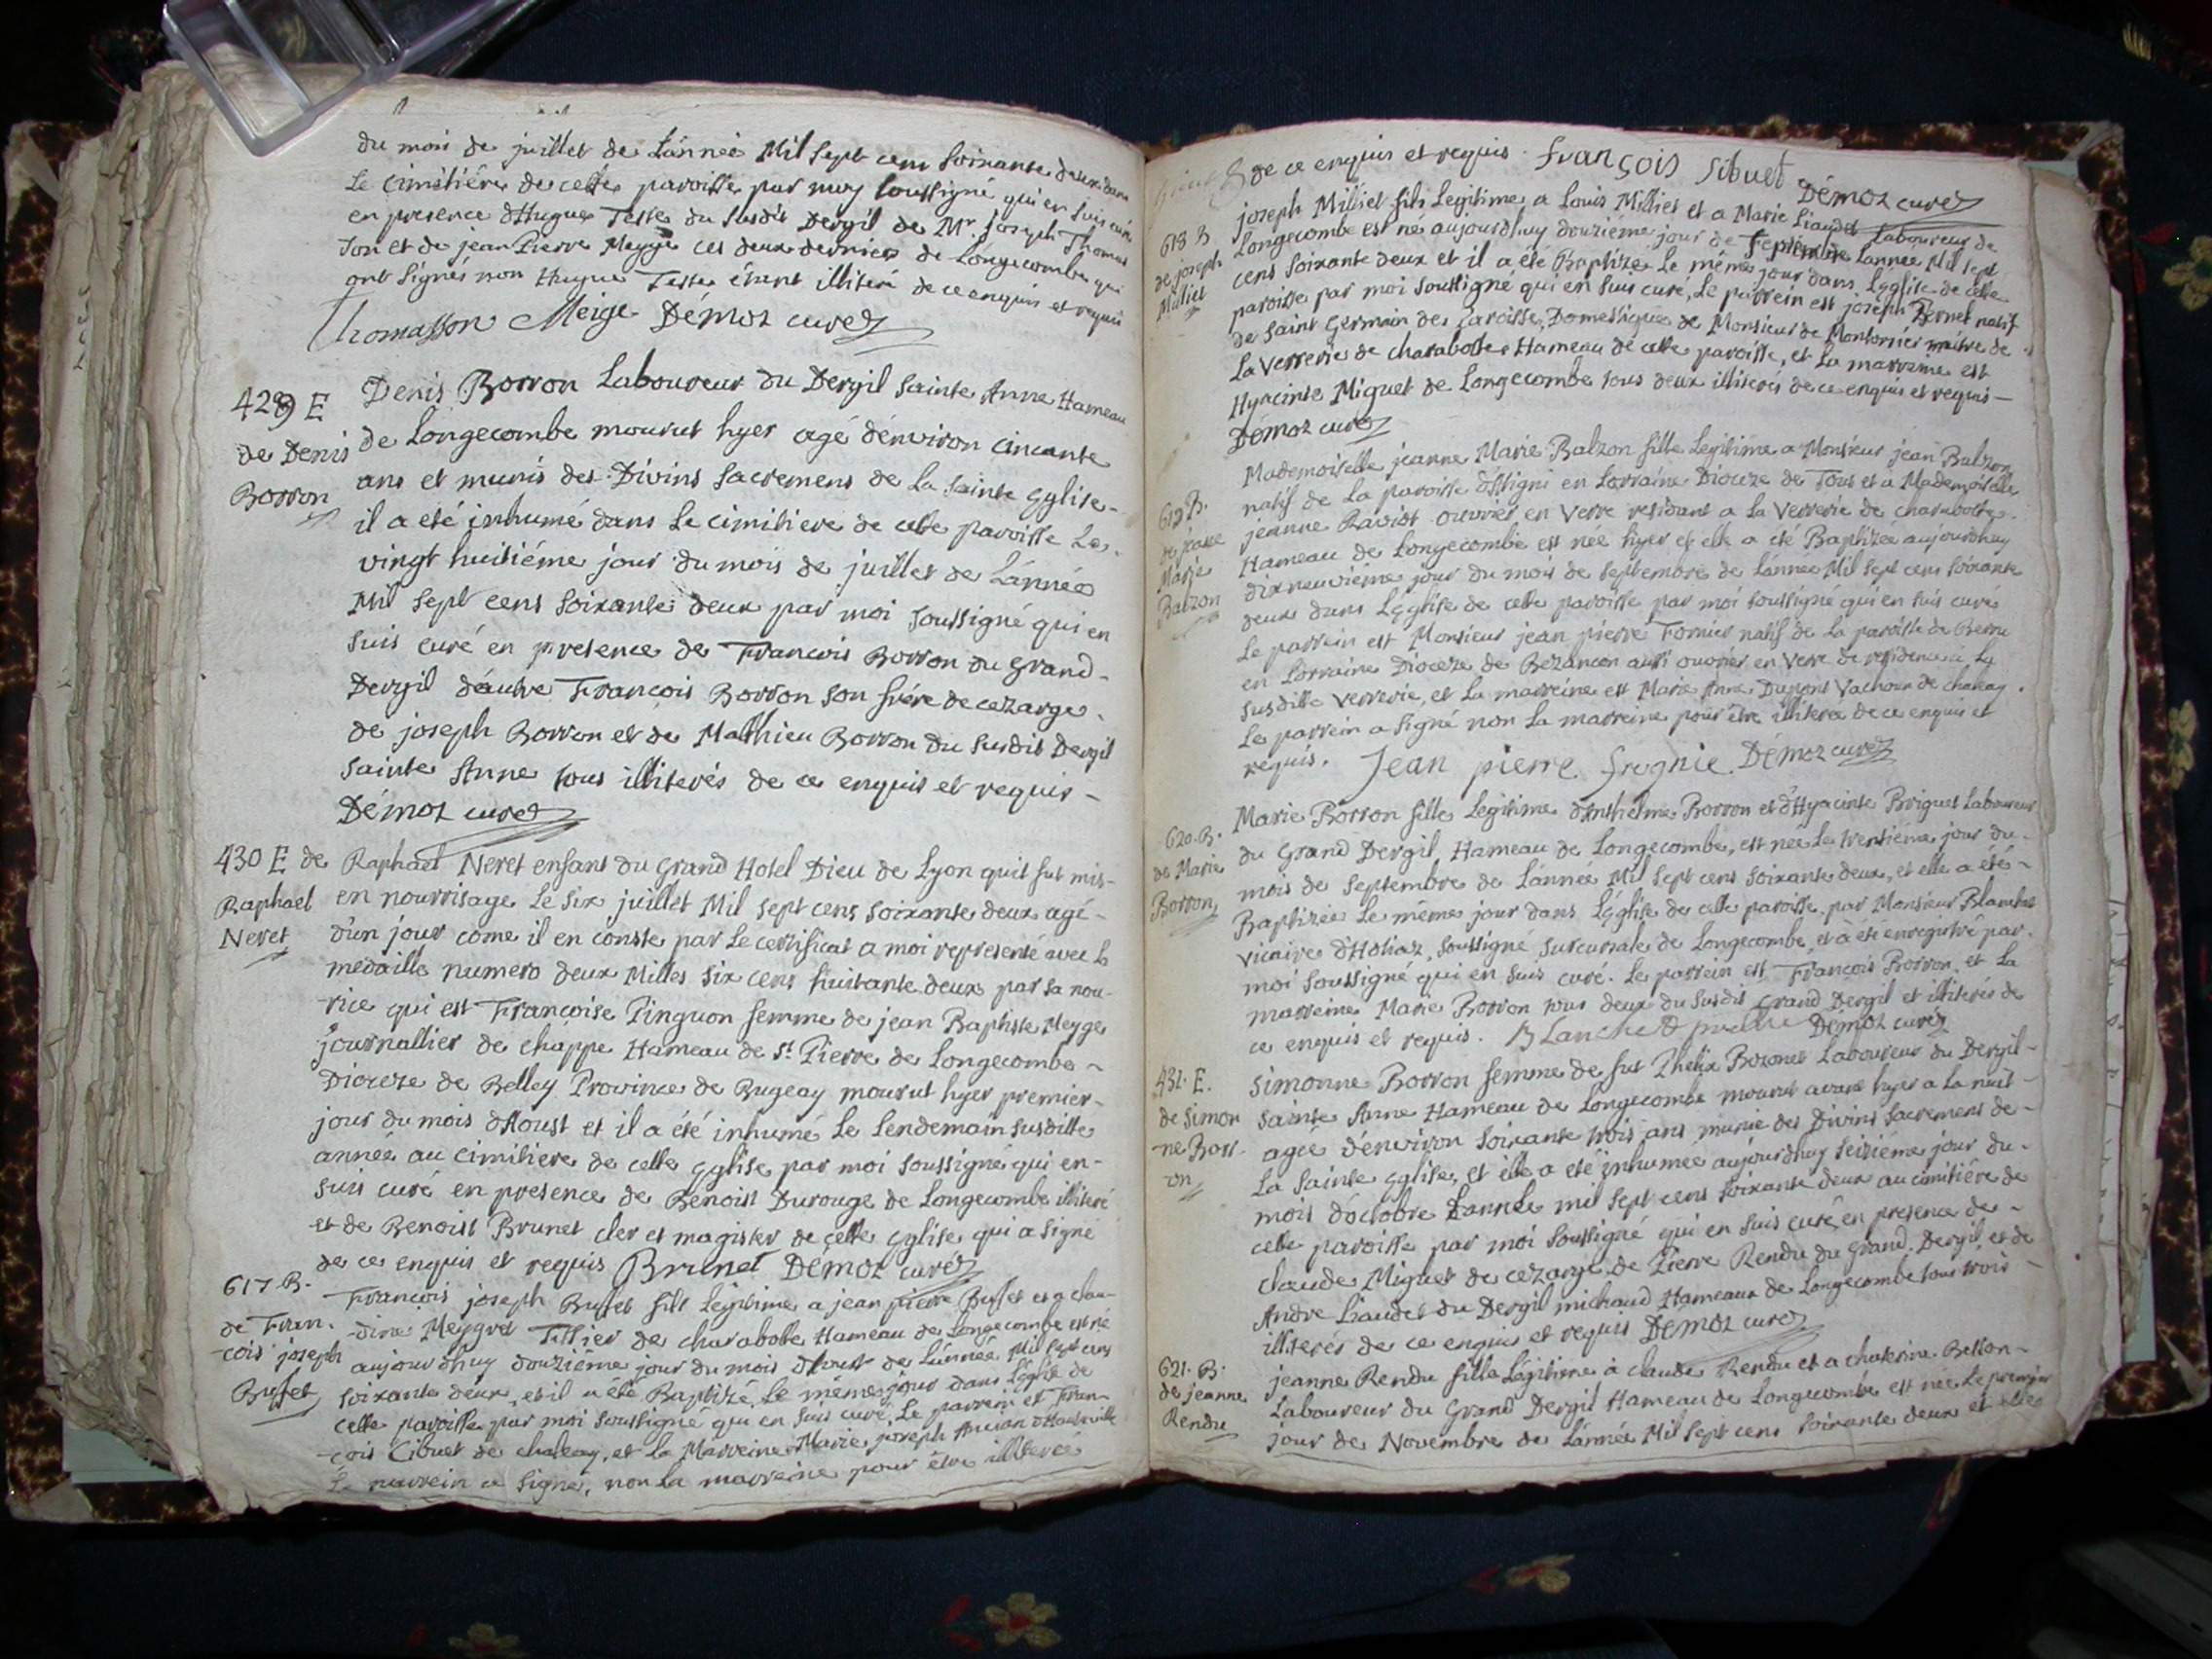 du mois de juillet de L'année Mil Sept cens Soixante deux dans
Le Cimétiére de cette paroisse par moy Soussigné qui en Suis curé
en presence d'Hugue Teste du Susdit Dergil de Mr. Joseph Thomas
Son et de jean Pierre Meyge ces deux derniers de Longecombe qui
ont Signés non Hugue Teste étant illiteré de ce enquis et requis
Thomasson Meige Démoz curé
429 E
de Denis
Borron
Denis Borron Laboureur du Dergil Sainte Anne Hameau
de Longecombe mourut hyer agé d'environ cincante
ans et munis des Divins Sacremens de La Sainte Eglise
il a eté inhumé dans Le cimitiere de cette paroisse Le
vingt huitiéme jour du mois de juillet de L'année
Mil Sept cens Soixante deux par moi Soussigné qui en
Suis curé en presence de Francois Borron du Grand
Dergil d'autre François Borron Son frére de cezarge
de joseph Borron et de Mathieu Borron du Susdit Dergil
Sainte Anne tous illiterés de ce enquis et requis
Démoz curé
430 E de
Raphael
Neret
Raphaël Neret enfant du Grand Hotel Dieu de Lyon quit fut mis
en nourrisage Le Six juillet Mil Sept cens Soixante deux agé
d'un jour come il en conste par Le certificat a moi representé avec la
medaille numero deux Milles Six cens huitante deux par Sa nou-
rice qui est Françoise Pinguon femme de jean Baptiste Meyge
journallier de chappe Hameau de St. Pierre de Longecombe
Dioceze de Belley Province de Bugeay mourut hyer premier
jour du mois d'Aoust et il a été inhumé Le Lendemain Susditte
année au Cimitiere de cette Eglise par moi Soussigné qui en
Suis curé en presence de Benoist Durouge de Longecombe illiteré
et de Benoist Brunet cler et magister de cette Eglise qui a Signé
de ce enquis et requis Brunet Démoz curé
617 B.
de Fran-
cois joseph
Buffet
François joseph Buffet fils Légitime a jean pierre Buffet et a clau-
dine Meygret Tissier de charabotte Hameau de Longecombe est né
aujourdhuy douziéme jour du mois d'Aoust de L'année Mil Sept cens
Soixante deux, et il a été Baptizé Le même jour dans L'Eglise de
cette paroisse par moi Soussigné qui en Suis curé, Le parrein est Fran-
cois Cibuet de chaleay, et la Marreine Marie joseph d'Hauteville
Le parrein a Signé, non La marreine pour être illiterée
de ce enquis et requis. françois Sibuet Démoz curé
618 B
de joseph
Milliet
joseph Milliet fils Legitime a Louis Milliet et a Marie Liaudet Laboureur de
Longecombe est né aujourdhuy douziéme jour de Septembre Lannée Mil Sept
cens Soixante deux et il a été Baptizé Le même jour dans L'église de cette
paroisse par moi Soussigné qui en Suis curé, Le parrein est joseph Pernet natif
de Saint Germain de Paroisse, Domestique de Monsieur de Montornier maitre de
La Verrerie de charabotte Hameau de cette paroisse, et La marreine est
Hyacinte Miguet de Longecombe tous deux illiterés de ce enquis et requis
Démoz curé
619 B.
de jeanne
Marie
Balzon
Mademoiselle jeanne Marie Balzon fille Legitime a Monsieur jean Balzon
natif de La paroisse en Lorraine Dioceze de Toul et a Mademoiselle
jeanne Ravist ouvrier en Verre residant a La Verrerie de charabotte
Hameau de Longecombe est née hyer et elle a été Baptizée aujourdhuy
dixneuviéme jour du mois de Septembre de L'année Mil Sept cens Soixante
deux dans L'Eglise de cette paroisse par moi Soussigné qui en Suis curé
Le parrein est Monsieur jean pierre Fornier natif de La paroisse de
en Lorraine Dioceze de Bezancon aussi ouvrier en Verre de residence a La
Susditte Verrerie, et La marreine est Marie Anne Dupont de chaleay
Le parrein a Signé non La marreine pour être illiterée de ce enquis et
requis. Jean pierre Démoz curé
620. B.
de Marie
Borron
Marie Borron fille Legitime d'Anthelme Borron et d'Hyacinte Briguet Laboureur
du Grand Dergil Hameau de Longecombe, est née Le trentiéme jour du
mois de Septembre de L'année Mil Sept cens Soixante deux, et elle a été
Baptizée Le même jour dans L'église de cette paroisse par Monsieur Blanchet
vicaire d'Hotiaz, Soussigné Surcursale de Longecombe, et a été enregistré par
moi Soussigné qui en Suis curé. Le parrein est François Borron et La
marreine Marie Borron tous deux du Susdit Grand Dergil et illiterés de
ce enquis et requis. BLanchet Démoz curé
431. E.
de Simon-
ne Borr-
on
Simonne Borron femme de fut Phelix Bozonet Laboureur du Dergil
Sainte Anne Hameau de Longecombe mourut avant hyer a La nuit
agée d'environ Soixante trois ans munie des Divins Sacremens de
La Sainte Eglise, et elle a eté inhumée aujourdhuy Seiziéme jour du
mois d'octobre Lannée mil Sept cens Soixante deux au cimitiére de
cette paroisse par moi Soussigné qui en Suis curé, en presence de
claude Miguet de cezarge de Pierre Rendu du Grand Dergil et de
Andre Liaudet du Dergil michaud Hameaux de Longecombe tous trois
illiterés de ce enquis et requis Démoz curé
621. B.
de jeanne
Rendu
jeanne Rendu fille Légitime à claude Rendu et a chaterine Betton
Laboureur du Grand Dergil Hameau de Longecombe est née Le premier
jour de Novembre de L'année Mil Sept cens Soixante deux et elle